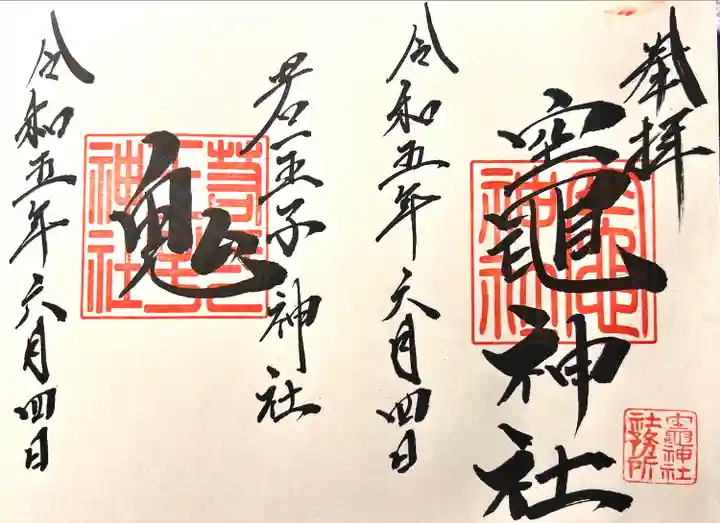 奉拝
竈神社
竈神社
竈神社
社務所
令和五年六月四日
若一王子神社
鬼
若一王子神社
令和五年六月四日